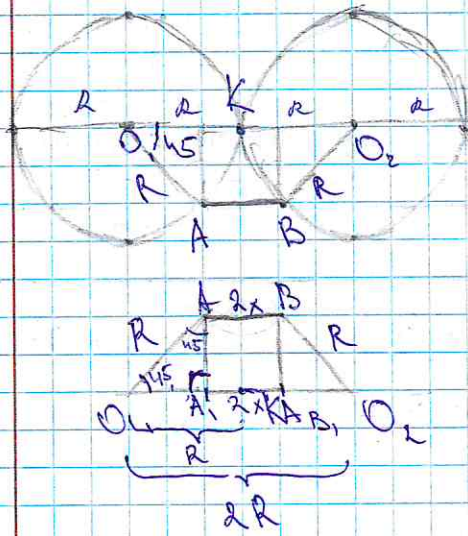 R R K R R
O₁ 45 O₂
R R
A B
A 2x B
R 45 R
45
O₁ A₁ 2x K A B₁ O₂
R
2R